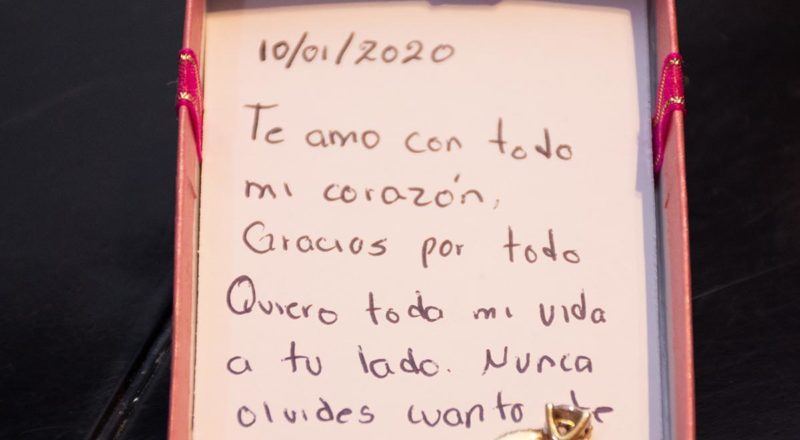 10/01/2020
Te amo con todo
mi corazón,
Gracias por todo
Quiero toda mi vida
a tu lado. Nunca
olvides cuanto te